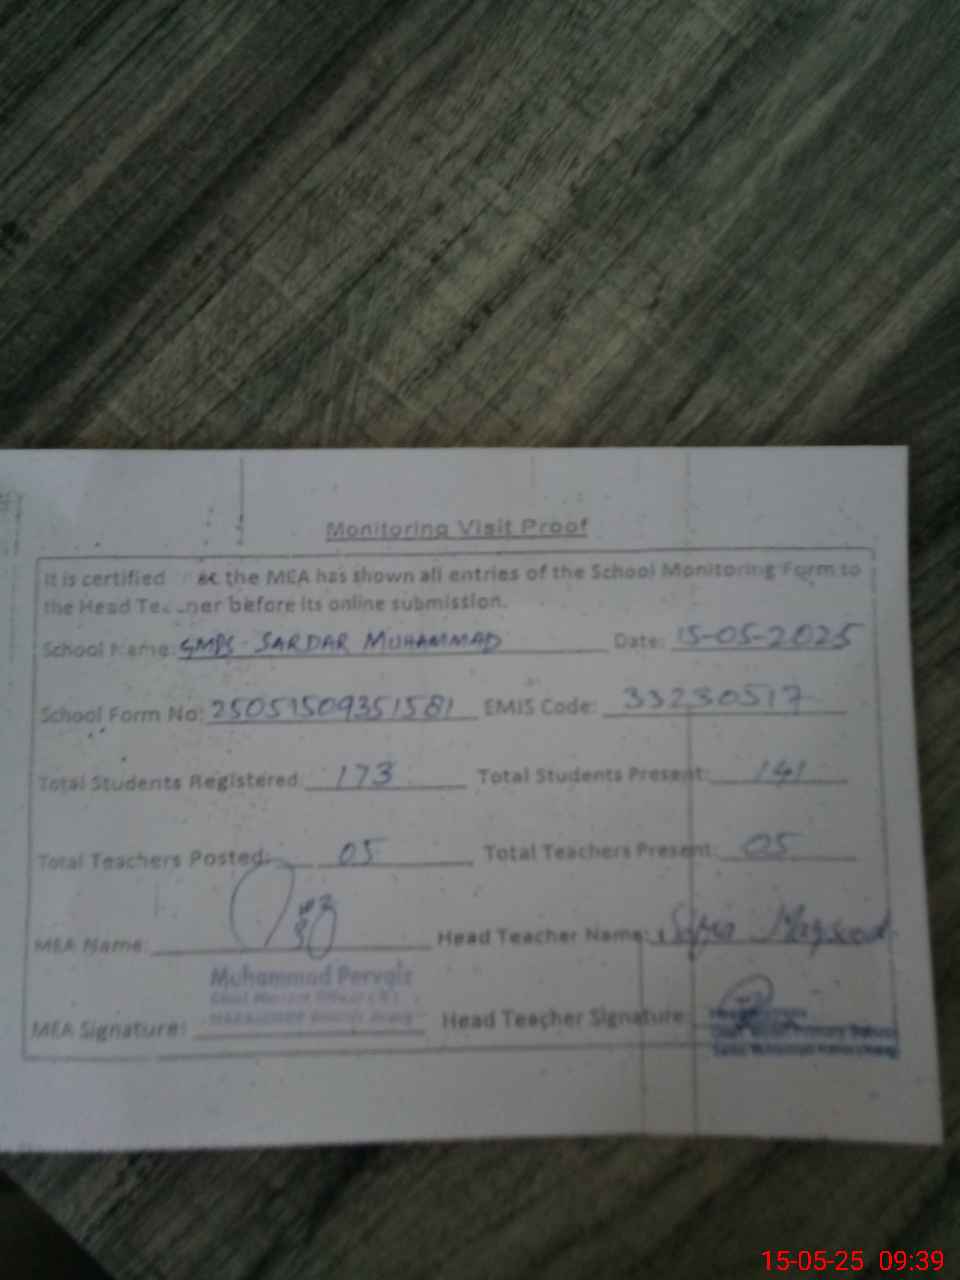 Monitoring Visit Proof
It is certified the MEA has shown all entries of the School Monitoring Form to
the Head before its online submission.
School Name: GMPS - SARDAR MUHAMMAD Date: 15-05-2025
School Form No: 25051509351581 EMIS Code: 33230517
Total Students Registered 173 Total Students Present: 141
Total Teachers Posted: 05 Total Teachers Present: 05
MEA Name: Head Teacher Name: Sofia Maqsood
Muhammad Pervaiz
MEA Signature: Head Teacher Signature
15-05-25 09:39